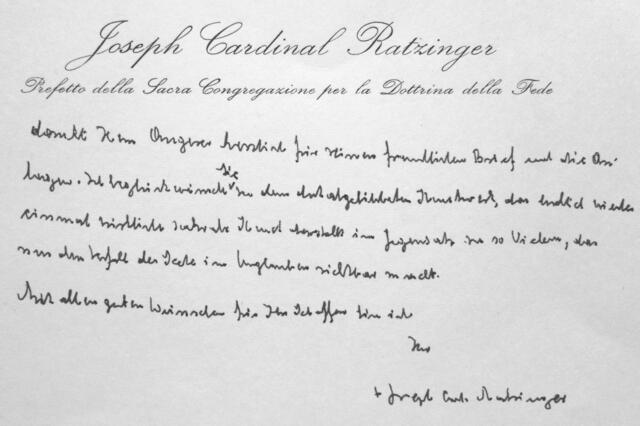 Joseph Cardinal Ratzinger
Prefetto della Sacra Congregazione per la Dottrina della Fede
dankt Herrn herzlich für seinen freundlichen Brief und die An-
lagen. Ich beglückwünsche Sie zu dem dort abgebildeten Kunstwerk, das endlich wieder
einmal wirklich Kunst darstellt im Gegensatz zu so Vielem, das
nur den Verfall der Seele im Unglauben sichtbar macht.
Mit allen guten Wünschen für Ihr Schaffen bin ich
Ihr
+ Joseph Card. Ratzinger